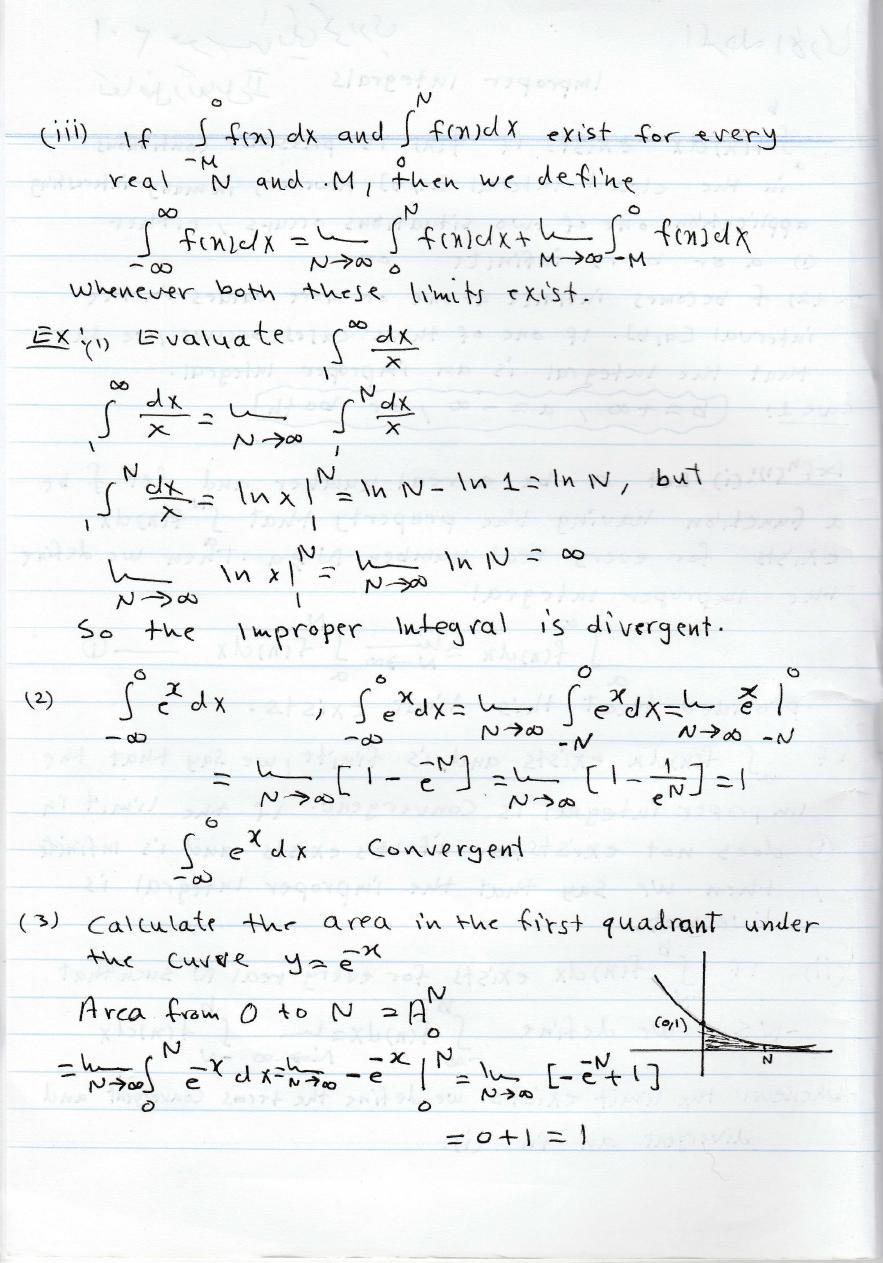 (iii) If ∫_{-M}^{0} f(x) dx and ∫_{0}^{N} f(x) dx exist for every
real N and M, then we define
∫_{-∞}^{∞} f(x) dx = lim_{N→∞} ∫_{0}^{N} f(x) dx + lim_{M→∞} ∫_{-M}^{0} f(x) dx
whenever both these limits exist.
Ex: (1) Evaluate ∫_{1}^{∞} dx/x
∫_{1}^{∞} dx/x = lim_{N→∞} ∫_{1}^{N} dx/x
∫_{1}^{N} dx/x = ln x |_{1}^{N} = ln N - ln 1 = ln N, but
lim_{N→∞} ln x |_{1}^{N} = lim_{N→∞} ln N = ∞
So the Improper Integral is divergent.
(2) ∫_{-∞}^{0} e^x dx , ∫_{-∞}^{0} e^x dx = lim_{N→∞} ∫_{-N}^{0} e^x dx = lim_{N→∞} e^x |_{-N}^{0}
= lim_{N→∞} [1 - e^{-N}] = lim_{N→∞} [1 - 1/e^N] = 1
∫_{-∞}^{0} e^x dx Convergent
(3) Calculate the area in the first quadrant under
the curve y = e^{-x}
Area from 0 to N = A_{0}^{N}
(0,1)
N
= lim_{N→∞} ∫_{0}^{N} e^{-x} dx = lim_{N→∞} -e^{-x} |_{0}^{N} = lim_{N→∞} [-e^{-N} + 1]
= 0 + 1 = 1